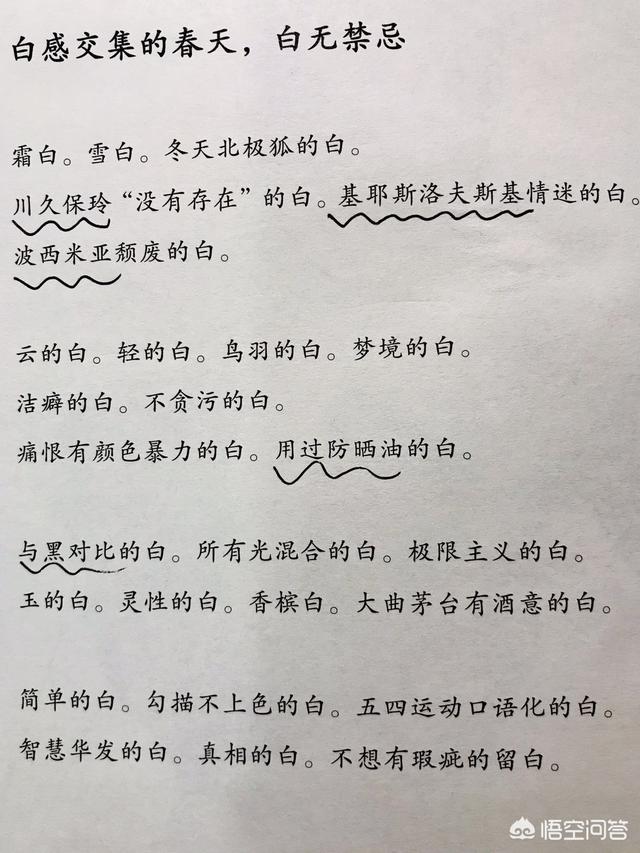 白感交集的春天，白无禁忌
霜白。雪白。冬天北极狐的白。
川久保玲“没有存在”的白。基耶斯洛夫斯基情迷的白。
波西米亚颓废的白。
云的白。轻的白。鸟羽的白。梦境的白。
洁癖的白。不贪污的白。
痛恨有颜色暴力的白。用过防晒油的白。
与黑对比的白。所有光混合的白。极限主义的白。
玉的白。灵性的白。香槟白。大曲茅台有酒意的白。
简单的白。勾描不上色的白。五四运动口语化的白。
智慧华发的白。真相的白。不想有瑕疵的留白。
悟空问答